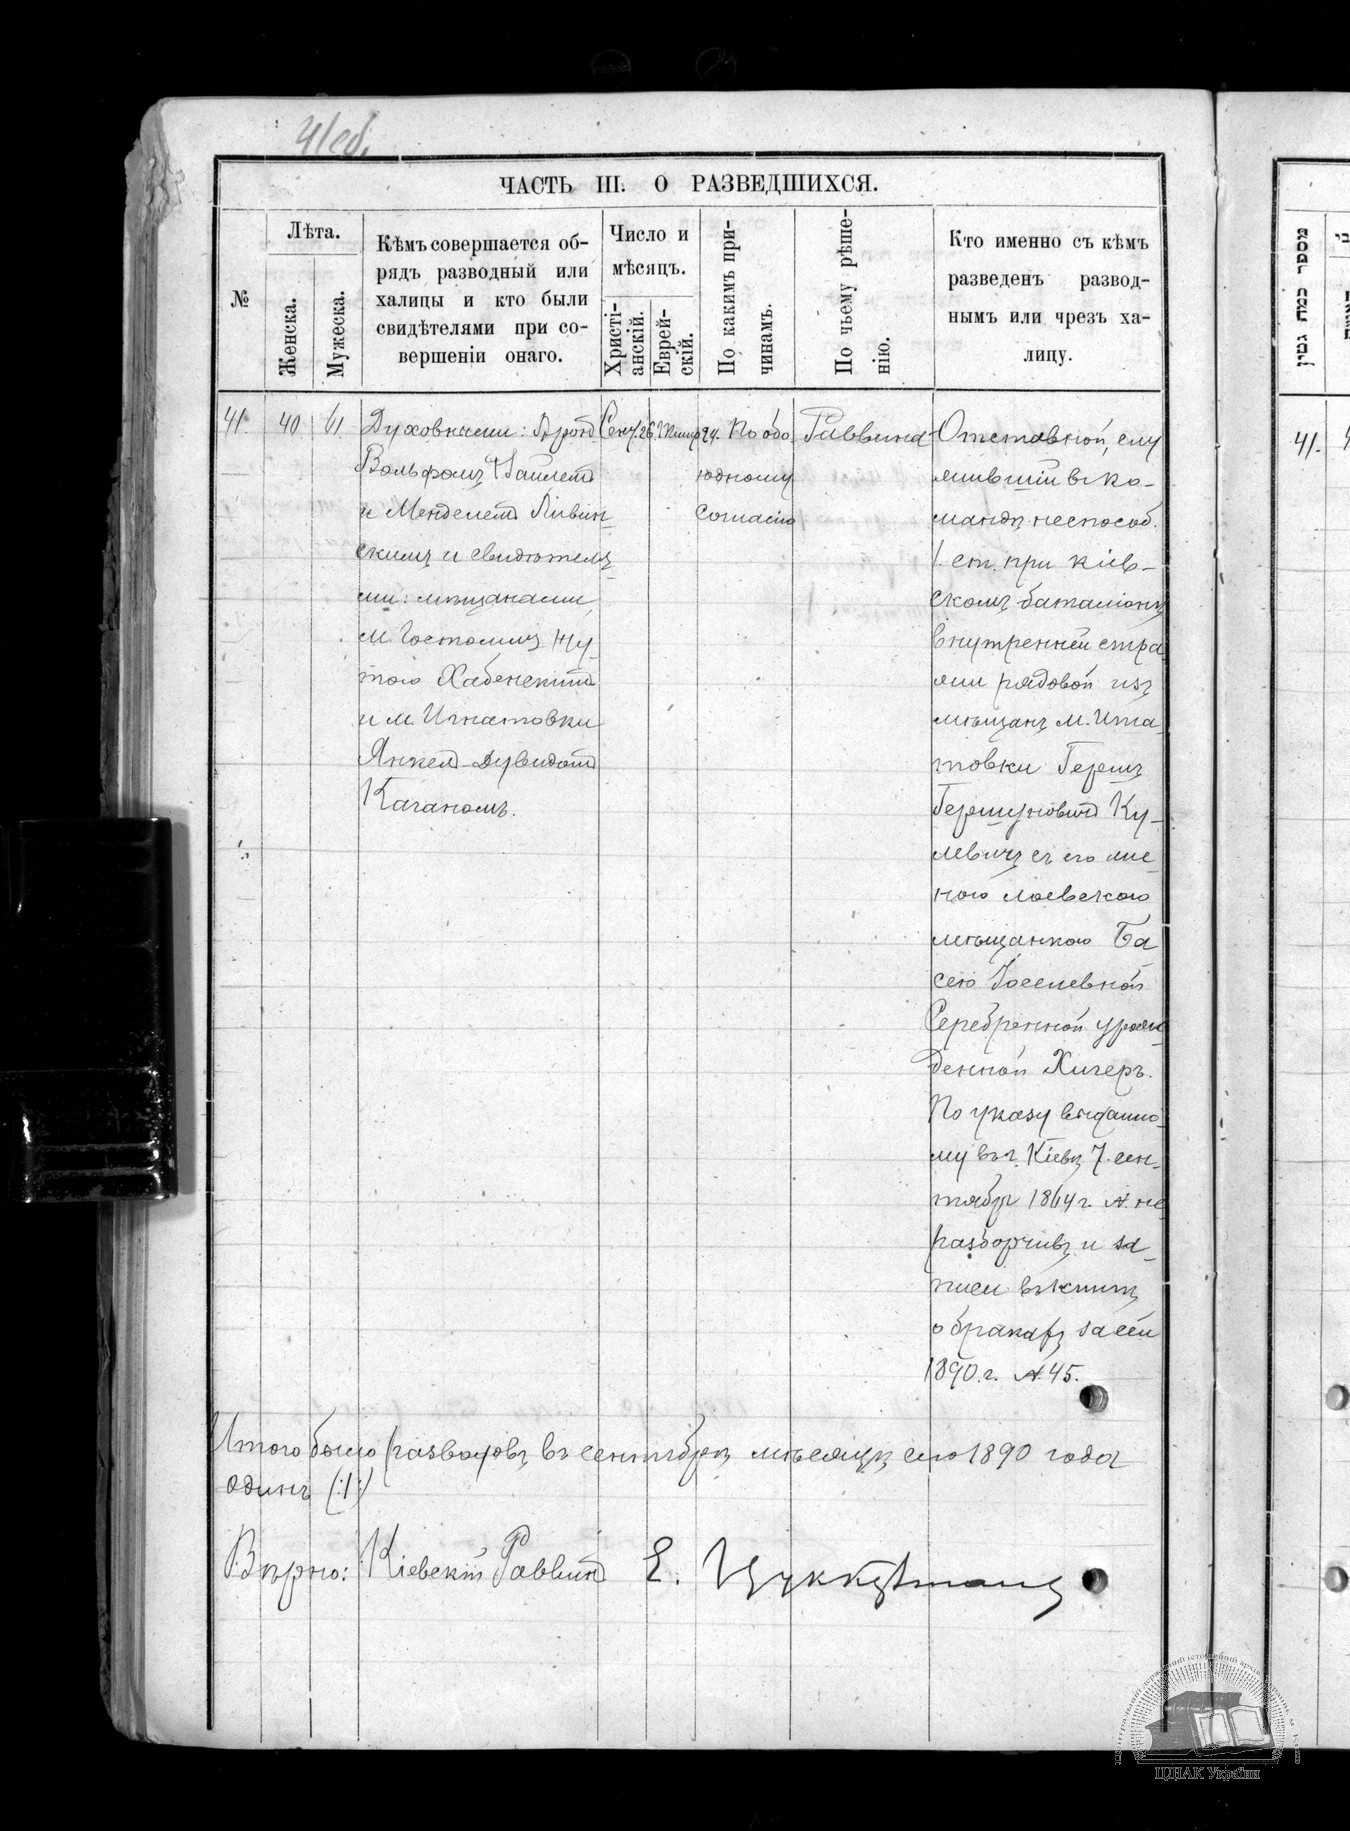 41об.
ЧАСТЬ III. О РАЗВЕДШИХСЯ.
№
Лѣта.
Женска.
Мужеска.
Кѣмъ совершается об-
рядъ разводный или
халицы и кто были
свидѣтелями при со-
вершеніи онаго.
Число и
мѣсяцъ.
Христі-
анскій.
Еврей-
скій.
По какимъ при-
чинамъ.
По чьему рѣше-
нію.
Кто именно съ кѣмъ
разведенъ развод-
нымъ или чрезъ ха-
лицу.
41.
40
61
Духовными: Арон
Вольфомъ
и Менделем Ливин-
скимъ и свидѣтеля-
ми: мѣщанами
м. Гостомля
Хабенским
и м. Игнатовки
Янкел-Дувидом
Каганомъ.
Сент. 26.
Тишр. 24.
По обо-
юдному
согласію
Раввина
Отставной, слу
жившій въ ко-
мандѣ неспособ.
1. ст. при Кіев-
скомъ баталіонѣ
внутренней стра
жи рядовой изъ
мѣщанъ м. Игна-
товки Гершъ
Гершунович Ку-
левичъ съ его же-
ною лоевскою
мѣщанкою Ба-
сею Іоселевной
Серебренной урож-
денной Хигеръ.
По указу выданно-
му въ г. Кіевѣ 7. сен-
тября 1864 г. № не-
разборчивъ и за-
писи въ книгѣ
о бракахъ за сей
1890. г. № 45.
Итого было разводовъ въ сентябрѣ мѣсяцѣ сего 1890 года
одинъ (:1:)
Вѣрно: Кіевскій Раввин Е. Цуккерманъ
מספר כמה גטין
41.
ЦДІАК України